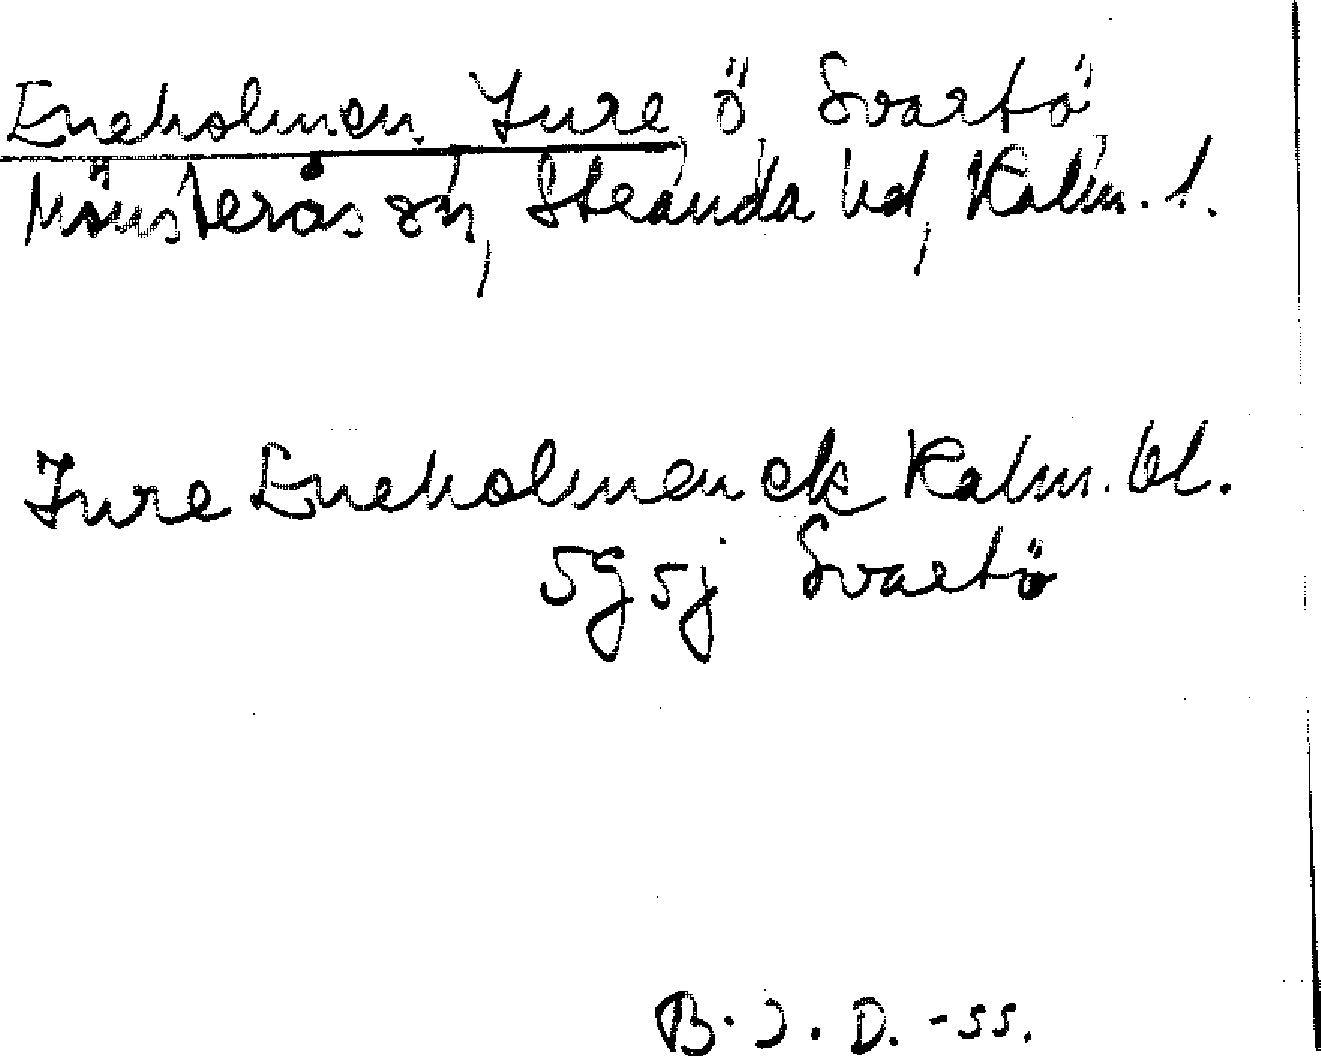 Eneholmen, Inre, ö, Svartö,
Mönsterås sn, Stranda hd, Kalm. l.
Inre Eneholmen ek Kalm. bl.
5g5j Svartö
B.J.D. -55.